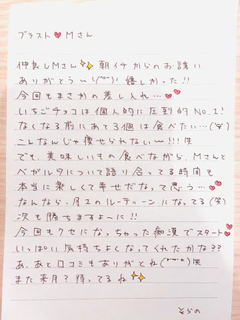 ブラスト❤Mさん
仲良しMさん✨朝イチからのお誘い
ありがとう〜\(^^)/ 嬉しかった!!
今回もまさかの差し入れ…💕
いちごチョコは個人的に圧倒的No.1!
なくなる前にあと3個は食べたい…(´∀`)
こんなんじゃ痩せられない〜!!!笑
でも、美味しいもの食べながら、Mさんと
ベガルタについて語り合ってる時間も
本当に楽しくて幸せだなって思う…💕
なんなら、月1のルーティーンになってる(笑)
次も勝ちますよ〜に!!
今回もクセになっちゃった痴漢でスタート💕
いっぱい気持ちよくなってくれたかな??
あ、あと口コミもありがとね(^ー^)笑
また来月?待ってるね✨